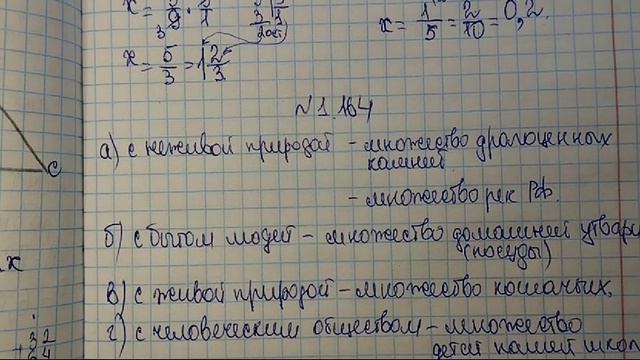 x = 5/9 · 3/1
x = 5/3 = 1 2/3
x = 1/5 = 2/10 = 0,2.
N 1.164
а) с неживой природой - множество драгоценных
камней.
- множество рек РФ.
б) с бытом людей - множество домашней утвари
(посуды)
в) с живой природой - множество кошачьих.
г) с человеческим обществом - множество
детей нашей школ
C